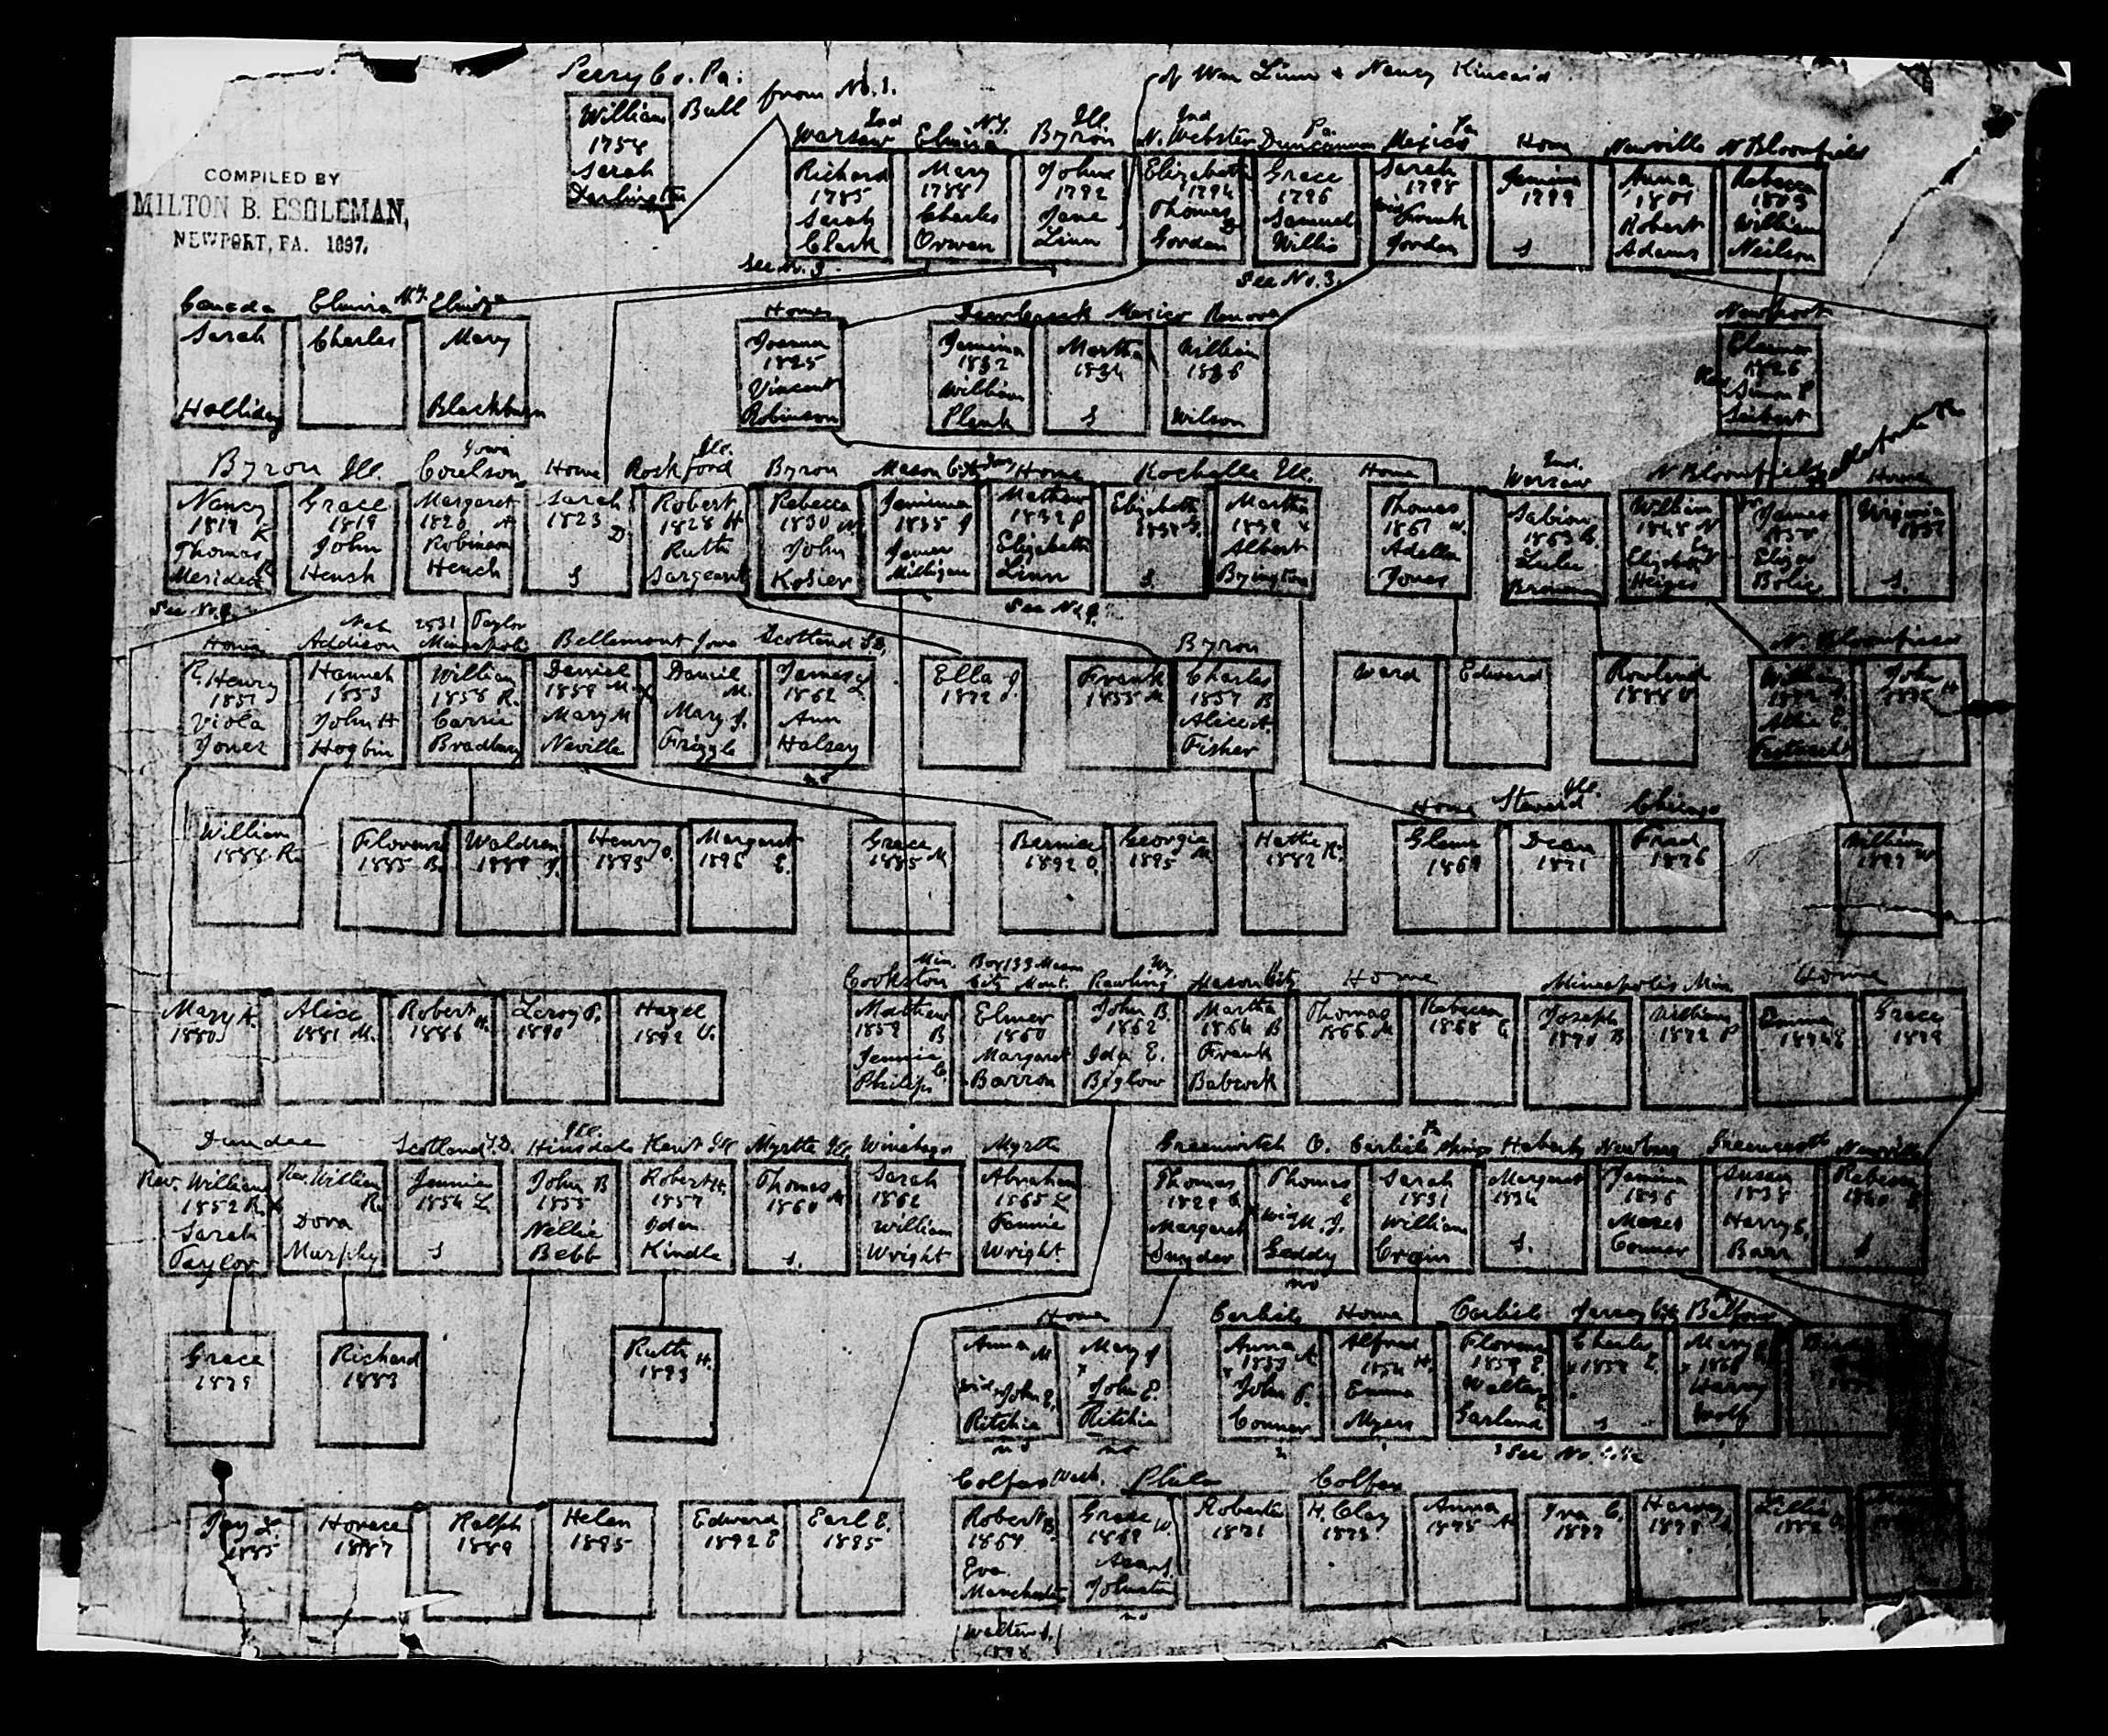 Perry Co. Pa.
of Wm Linn & Nancy Kincaid
from No. 1.
William Bull
1758
Sarah
Darlington
COMPILED BY
MILTON B. ESHLEMAN,
NEWPORT, PA. 1897.
Warsaw Ind
Richard
1785
Sarah
Clark
See No. 3.
Elmira N.Y.
Mary
1788
Charles
Orwan
Byron Ill
John
1792
Jane
Linn
N. Webster Ind
Elizabeth
1794
Thomas
Gordan
Duncannon Pa.
Grace
1796
Samuel
Willis
See No. 3.
Mexico Pa
Sarah
1798
wid Frank
Jordan
Home
Jemima
1799
S
Newville
Anna
1801
Robert
Adams
N Bloomfield
Rebecca
1803
William
Neilson
Canada
Sarah
Holliday
Elmira N.Y.
Charles
Elmira
Mary
Blackburn
Home
Joanna
1825
Vincent
Robinson
Jemima
1832
William
Plank
Mexico
Martha
1834
S
Renova
William
1836
Wilson
Newport
Eleanor
1826
Rev Simon P
Seibert
Byron Ill.
Nancy K
1817
Thomas
Meridith
See No. 9.
Grace
1819
John
Hench
Coulson Iowa
Margaret A
1820
Robinson
Hench
Home
Sarah
1823 D
S
Rockford Ill.
Robert
1828 H
Ruth
Sargeant
Byron
Rebecca
1830 N
John
Kosier
Mason City
Jemima
1835 J
James
Milligan
Home
Mathew
1832 P
Elizabeth
Linn
See No. 9.
Rochelle Ill.
Elizabeth
S.
Martha
1839
Albert
Byington
Home
Thomas
1861 W.
Adella
Jones
Warsaw Ind.
1863
Lulu
Brown
N Bloomfield
William
1848 N
Elizabeth
Heiges
James
1850
Eliza
Home
Virginia
1857
S.
Home
R. Henry
1851
Viola
Jones
Addison Neb
Hannah
1853
John H
Hogbin
2531 Taylor
Minneapolis
William
1858 R.
Carrie
Bradbury
Bellemont Iowa
Daniel
1859 M.
Mary M
Neville
Daniel
M.
Mary J.
Frizzle
Scotland S.D.
James L.
1862
Ann
Halsey
no
Ella J.
1872
Frank
1855 M
Byron
Charles
1857 B
Alice A.
Fisher
Ward
Edward
Rowland
1888
N. Bloomfield
William
John H
William
1888 R.
Florence
1885 B.
Waldren
1889 J.
Henry O.
1893
Margaret
1896 E.
Grace
1885 M
Bernice
1892 O.
Georgia
1895 M
Hattie R.
1882
Home
Glenn
1869
Steward Ill.
Dean
1871
Chicago
Fred
1876
William W
1897
Mary A.
1880
Alice
1881 M.
Robert H.
1886
Leroy P.
1890
Hazel
1892 V.
Crookston Min.
Mathew
1859 B
Jennie C.
Philips
Box 133 Mason
City Mont.
Elmer
1860
Margaret
Barron
Rawling Wy.
John B.
1862
Ida E.
Biglow
Mason City
Martha
1864 B
Frank
Babcock
Home
Thomas
1866 M
Rebecca
1868 C
Minneapolis Min.
Joseph
1870 B
William
1872 P
Home
Emma
1874 E
Grace
1879
Dundee
Rev. William
1852 R. x
Sarah
Taylor
Rev. William
R.
Dora
Murphy
Scotland S.D.
Jennie
1854 L
S
Hinsdale Ill.
John B
1855
Nellie
Bebb
Kent Ill
Robert H.
1857
Kindle
Myrtle Ill.
Thomas M
1860
S.
Winebago
Sarah
1862
William
Wright
Myrtle
Abraham
1865 L
Fannie
Wright.
Greenwich O.
Thomas
1829 C
Margaret
Snyder
Thomas
C
wid M. J.
Geddy
no
Carlisle Springs Pa
Sarah
1831
William
Crain
Margaret
1834
S.
Newburg
Jemima
1836
Moses
Conner
Greencastle
Susan
1838
Harry C.
Barr
Newville
Rebecca
1840
S
Grace
1879
Richard
1883
Ruth H.
1893
Home
Anna M
wid. John E.
Ritchie
no
Mary J
x
John E.
Ritchie
no
Carlisle
Anna
x John P.
Conner
Home
Alfred
1854 H.
Emma
Myers
Carlisle
Florence
1859 E.
Walter
Garland
See No.
Jersey City
Charles
x 1858 E.
S
Mary
x 1868
Harvey
Wolf
Jay L.
1885
Horace
1887
Ralph
1889
Helen
1895
Edward
1892 E
Earl E.
1895
Colfax Wash.
Robert B.
1864
Eva
Manchester
Walter S.
1898
Phila
Grace W.
1869
Johnston
no
Roberta
1871
Colfax
H. Clay
1873
Anna
1875 A
Iva C.
1877
Harvey
1879
Lillie